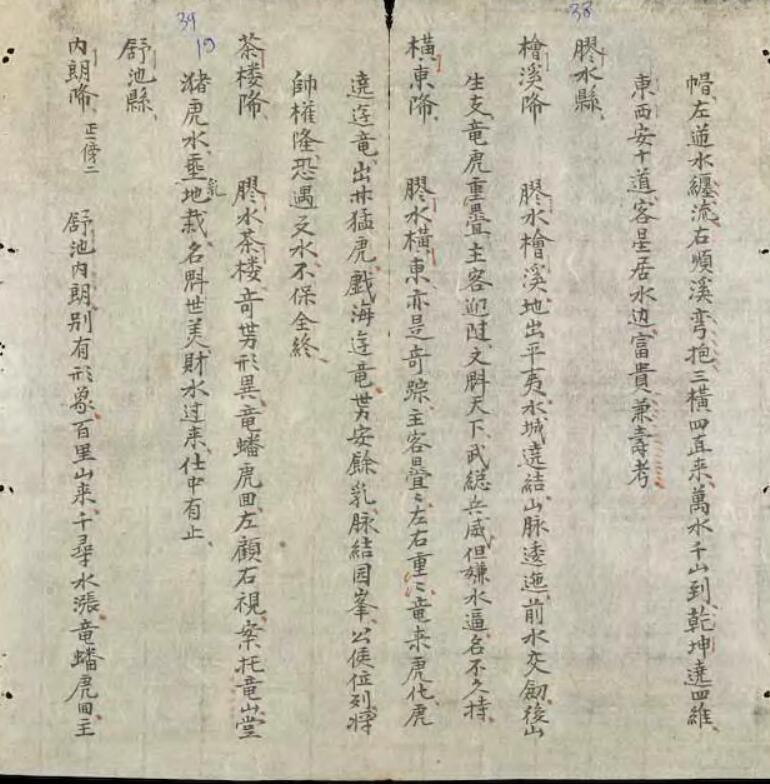 帽左道水纏流右順溪弯抱三橫四直來萬水千山到乾坤遶四維
東西安十道客星居水边富貴兼壽考
38
膠水縣
檜溪㖡 膠水檜溪地出平夷水城遶結山脉逶迤前水交劔後山
生支竜虎重疊主客迎陡文魁天下武総兵威但嫌水逼名不久持
橫東㖡 膠水橫東亦是竒踪主客疊〻左右重〻竜来虎化虎
遶迢竜出林猛虎戲海迢竜势安餘乳脉結因峯公侯位列將
帥權隆恐遇叉水不保全終
茶楼㖡 膠水茶楼竒势形異竜蟠虎囬左顧右視案托竜堂
39
19
猪虎水垂乳地裁名魁世美財水过来仕中有止
舒池縣
内朗㖡 正一傍二 舒池内朗别有形象百里山来千尋水漲竜蟠虎囬主